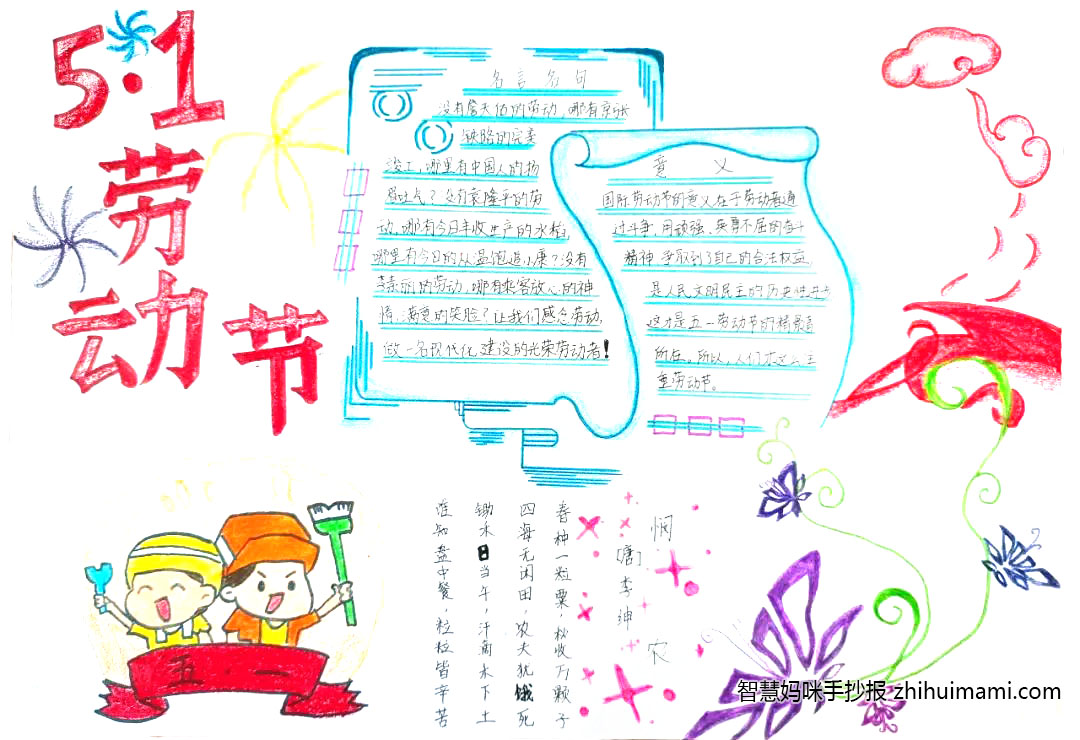 5·1
劳
动
节
名言名句
没有詹天佑的劳动,哪有京张
铁路的完美
竣工,哪里有中国人的扬
眉吐气?没有袁隆平的劳
动,哪有今日丰收生产的水稻,
哪里有今日的从温饱迨小康?没有
李素丽的劳动,哪有乘客放心的神
情,满意的笑脸?让我们感念劳动,
做一名现代化建设的光荣劳动者!
意义
国际劳动节的意义在于劳动者通
过斗争,用顽强、英勇不屈的奋斗
精神,争取到了自己的合法权益,
是人民文明民主的历史性进步
这才是五一劳动节的精髓
所在。所以,人们才这么
重劳动节。
五·一
悯农
[唐]李绅
春种一粒粟,秋收万颗子
四海无闲田,农夫犹饿死
锄禾日当午,汗滴禾下土
谁知盘中餐,粒粒皆辛苦
智慧妈咪手抄报 zhihuimami.com